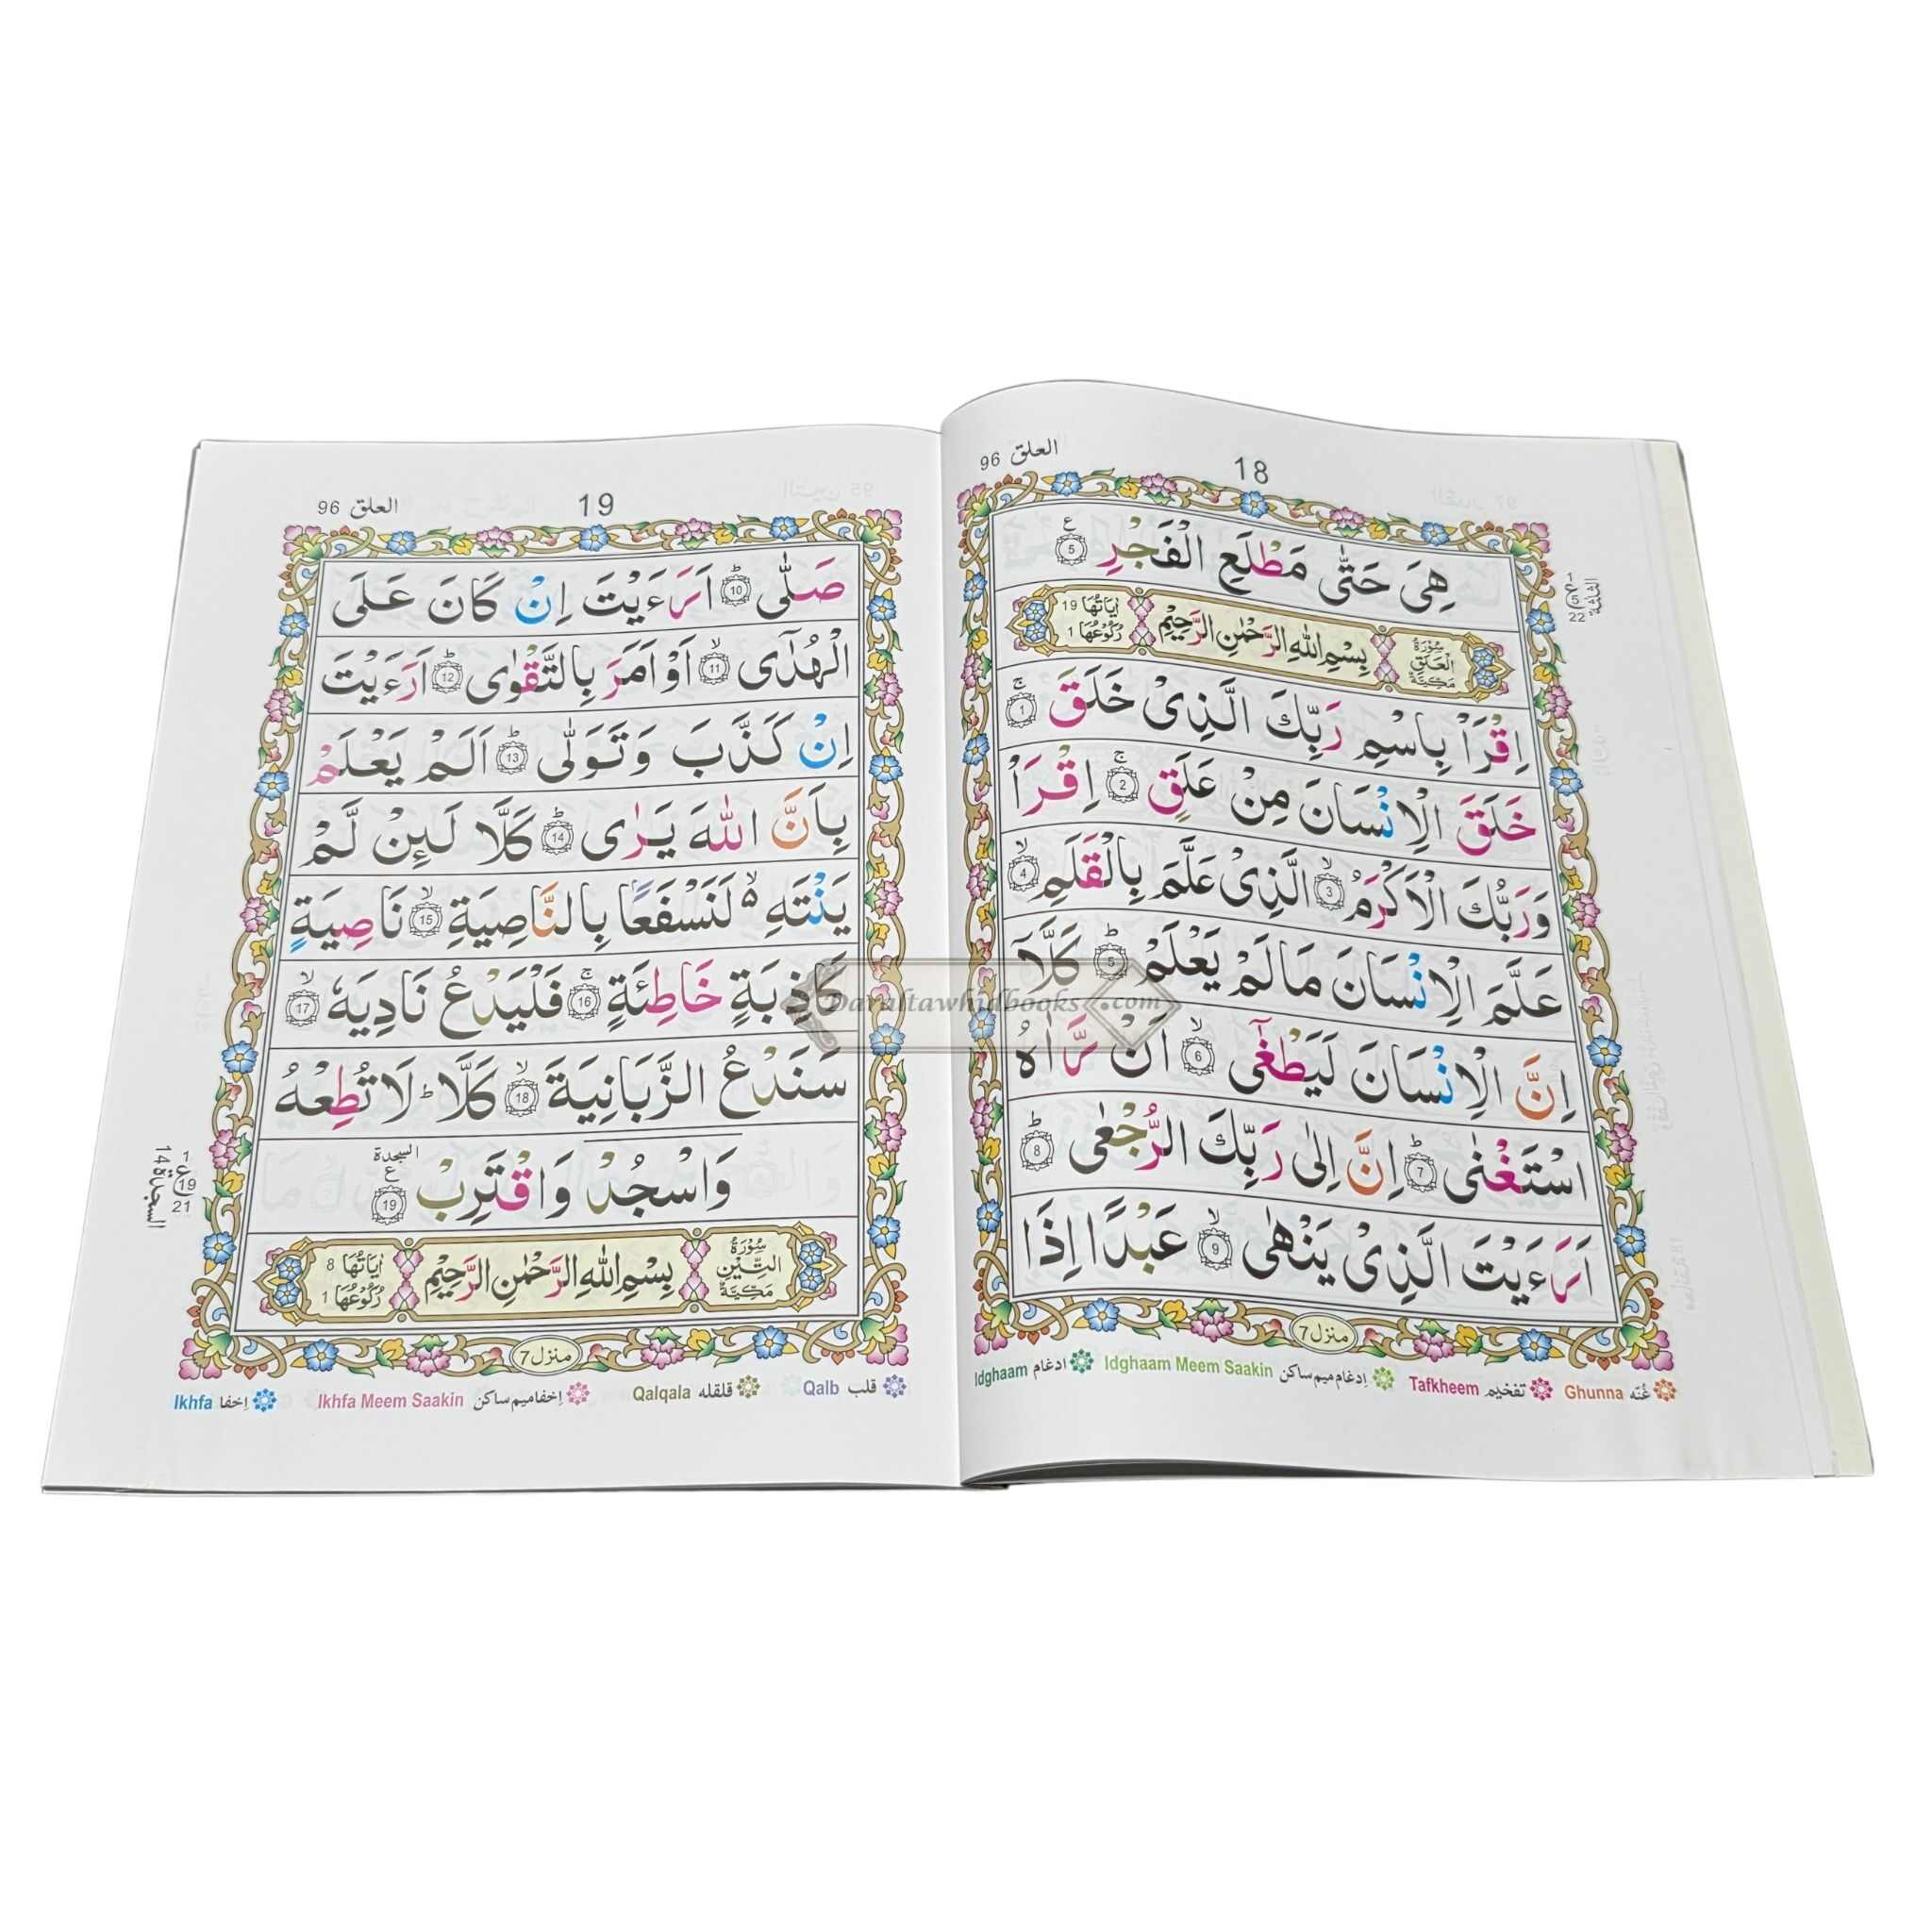 العلق 96
18
هِىَ حَتّٰى مَطْلَعِ الْفَجْرِ ۝5 ع
سُوْرَةُ الْعَلَقِ مَكِّيَّةٌ
بِسْمِ اللّٰهِ الرَّحْمٰنِ الرَّحِيْمِ
اٰيَاتُهَا 19
رُكُوْعُهَا 1
اِقْرَاْ بِاسْمِ رَبِّكَ الَّذِىْ خَلَقَ ۝1 ج
خَلَقَ الْاِنْسَانَ مِنْ عَلَقٍ ۝2 ج اِقْرَاْ
وَرَبُّكَ الْاَكْرَمُ ۝3 لا الَّذِىْ عَلَّمَ بِالْقَلَمِ ۝4 لا
عَلَّمَ الْاِنْسَانَ مَا لَمْ يَعْلَمْ ۝5 ط كَلَّآ
اِنَّ الْاِنْسَانَ لَيَطْغٰٓى ۝6 لا اَنْ رَّاٰهُ
اسْتَغْنٰى ۝7 ط اِنَّ اِلٰى رَبِّكَ الرُّجْعٰى ۝8 ط
اَرَءَيْتَ الَّذِىْ يَنْهٰى ۝9 لا عَبْدًا اِذَا
منزل 7
غُنّه Ghunna
تفخيم Tafkheem
اِدغام ميم ساكن Idghaam Meem Saakin
ادغام Idghaam
الثلثة
22
العلق 96
19
صَلّٰى ۝10 ط اَرَءَيْتَ اِنْ كَانَ عَلَى
الْهُدٰٓى ۝11 لا اَوْ اَمَرَ بِالتَّقْوٰى ۝12 ط اَرَءَيْتَ
اِنْ كَذَّبَ وَتَوَلّٰى ۝13 ط اَلَمْ يَعْلَمْ
بِاَنَّ اللّٰهَ يَرٰى ۝14 ط كَلَّا لَئِنْ لَّمْ
يَنْتَهِ ۵ لا لَنَسْفَعًا بِالنَّاصِيَةِ ۝15 لا نَاصِيَةٍ
كَاذِبَةٍ خَاطِئَةٍ ۝16 ج فَلْيَدْعُ نَادِيَهٗ ۝17 لا
سَنَدْعُ الزَّبَانِيَةَ ۝18 لا كَلَّا ط لَا تُطِعْهُ
وَاسْجُدْ وَاقْتَرِبْ ۝19 السجدة ع
سُوْرَةُ التِّيْنِ مَكِّيَّةٌ
بِسْمِ اللّٰهِ الرَّحْمٰنِ الرَّحِيْمِ
اٰيَاتُهَا 8
رُكُوْعُهَا 1
منزل 7
قلب Qalb
قلقله Qalqala
اِخفا ميم ساكن Ikhfa Meem Saakin
اِخفا Ikhfa
السجدة 14
1
ع
19
21
Daraltawhidbooks.com